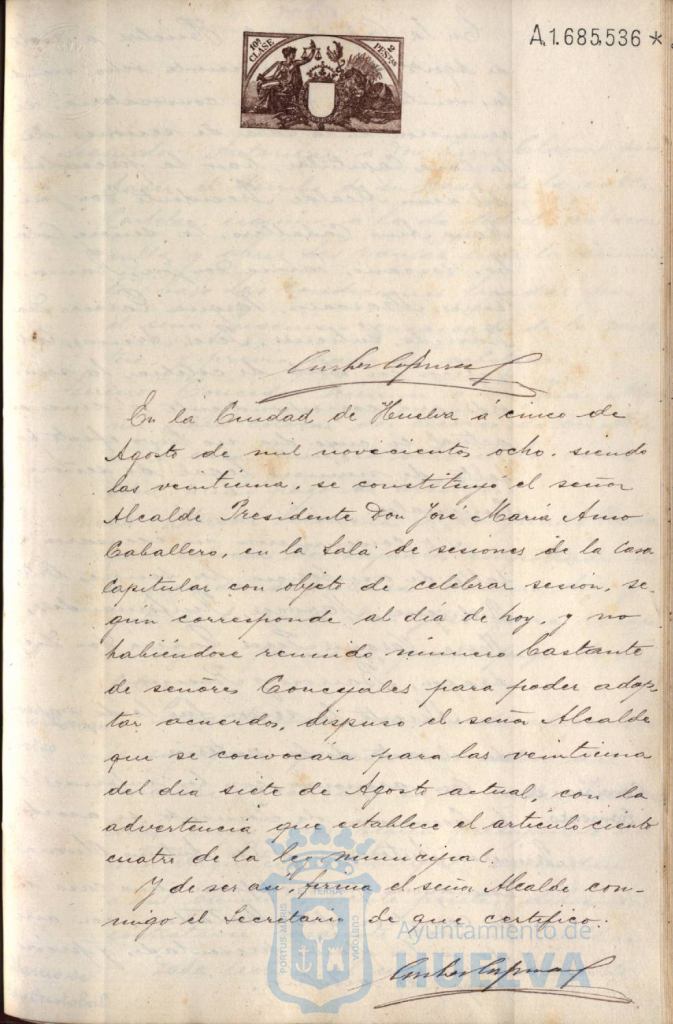 10ª CLASE
2 PESETAS
A.1.685.536 *
En la Ciudad de Huelva á cinco de
Agosto de mil novecientos ocho, siendo
las veintiuna, se constituyó el señor
Alcalde Presidente Don José María Amo
Caballero, en la Sala de sesiones de la Casa
Capitular con objeto de celebrar sesión, se-
gún corresponde al día de hoy, y no
habiéndose reunido número bastante
de señores Concejales para poder adop-
tar acuerdos, dispuso el señor Alcalde
que se convocara para las veintiuna
del dia siete de Agosto actual, con la
advertencia que establece el artículo ciento
cuatro de la ley municipal.
Y de ser así, firma el señor Alcalde con-
migo el Secretario de que certifico.
PORTUS MARIS
TERRÆ
CUSTODIA
Ayuntamiento de
HUELVA